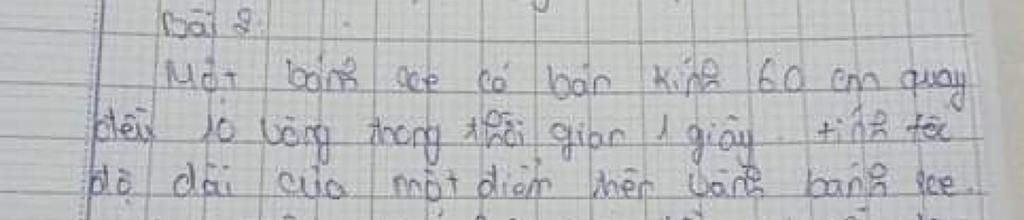 Bài 2:
Một bánh xe có bán kính 60 cm quay
đều 10 vòng trong thời gian 1 giây. tính tốc
độ dài của một điểm trên vành bánh xe.